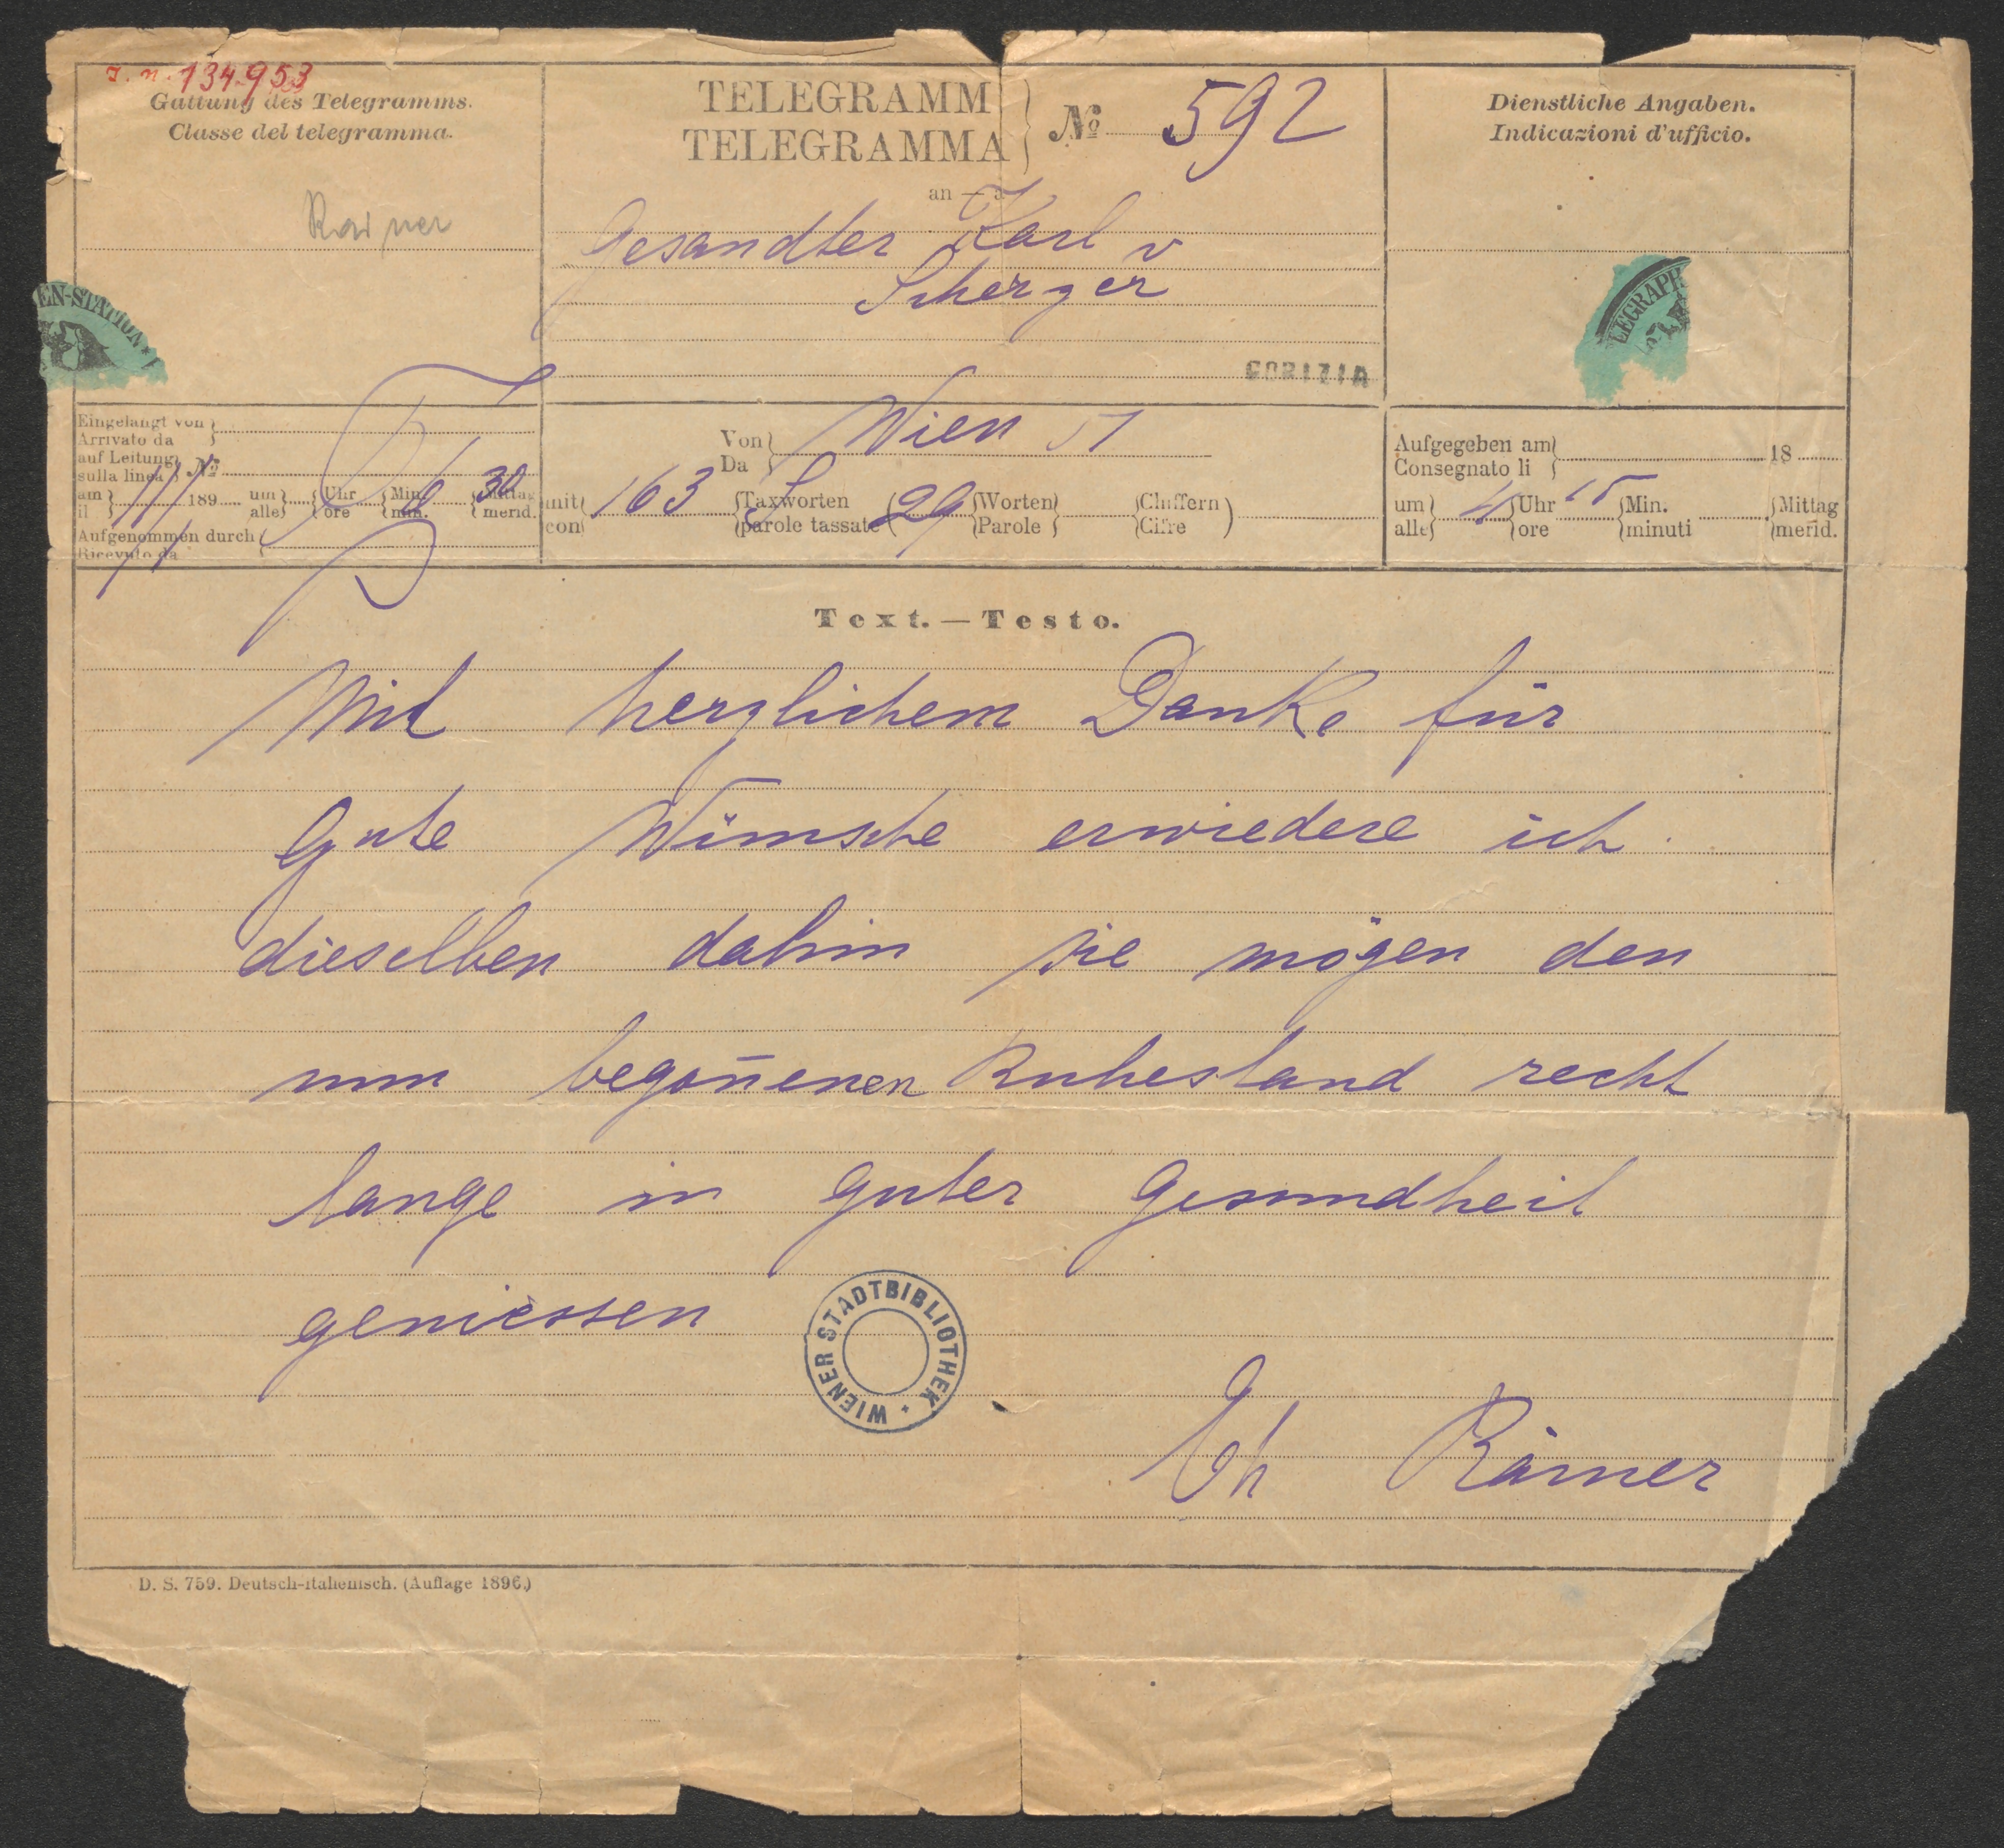 J. N. 134.953
Gattung des Telegramms.
Classe del telegramma.
Rainer
TELEGRAMM
TELEGRAMMA
№ 592
an — a
Gesandter Karl v
Scherzer
GORIZIA
Dienstliche Angaben.
Indicazioni d'ufficio.
EN-STATION
LEGRAPH
Eingelangt von
Arrivato da
auf Leitung
sulla linea № 
am 1/1 189 um Uhr 6 Min. 30 Mittag
il alle ore min. merid.
Aufgenommen durch
Ricevuto da
Von Wien 51
Da
mit 163 Taxworten (29 Worten Chiffern)
con parole tassate Parole Cifre
Aufgegeben am 18
Consegnato li
um 4 Uhr 15 Min. Mittag
alle ore minuti merid.
Text. — Testo.
Mit herzlichem Danke für
Gute Wünsche erwiedere ich
dieselben dahin sie mögen den
nun begon̄enen Ruhestand recht
lange in guter Gesundheit
geniessen
Eh Rainer
WIENER STADTBIBLIOTHEK
D. S. 759. Deutsch-italienisch. (Auflage 1896.)